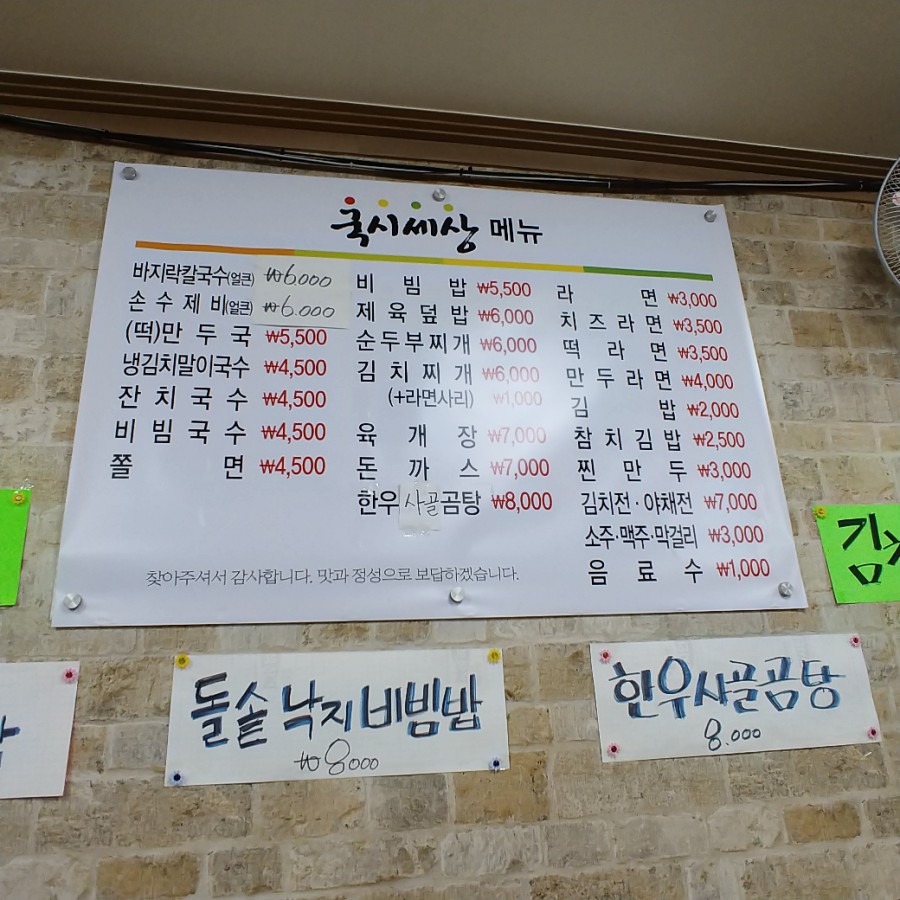 국시세상 메뉴
바지락칼국수(얼큰) ₩6000
손수제비(얼큰) ₩6.000
(떡)만두국 ₩5,500
냉김치말이국수 ₩4,500
잔치국수 ₩4,500
비빔국수 ₩4,500
쫄면 ₩4,500
비빔밥 ₩5,500
제육덮밥 ₩6,000
순두부찌개 ₩6,000
김치찌개 ₩6,000
(+라면사리) ₩1,000
육개장 ₩7,000
돈까스 ₩7,000
한우사골곰탕 ₩8,000
라면 ₩3,000
치즈라면 ₩3,500
떡라면 ₩3,500
만두라면 ₩4,000
김밥 ₩2,000
참치김밥 ₩2,500
찐만두 ₩3,000
김치전·야채전 ₩7,000
소주·맥주·막걸리 ₩3,000
음료수 ₩1,000
찾아주셔서 감사합니다. 맛과 정성으로 보답하겠습니다.
김
돌솥 낙지 비빔밥
₩8000
한우사골곰탕
8.000